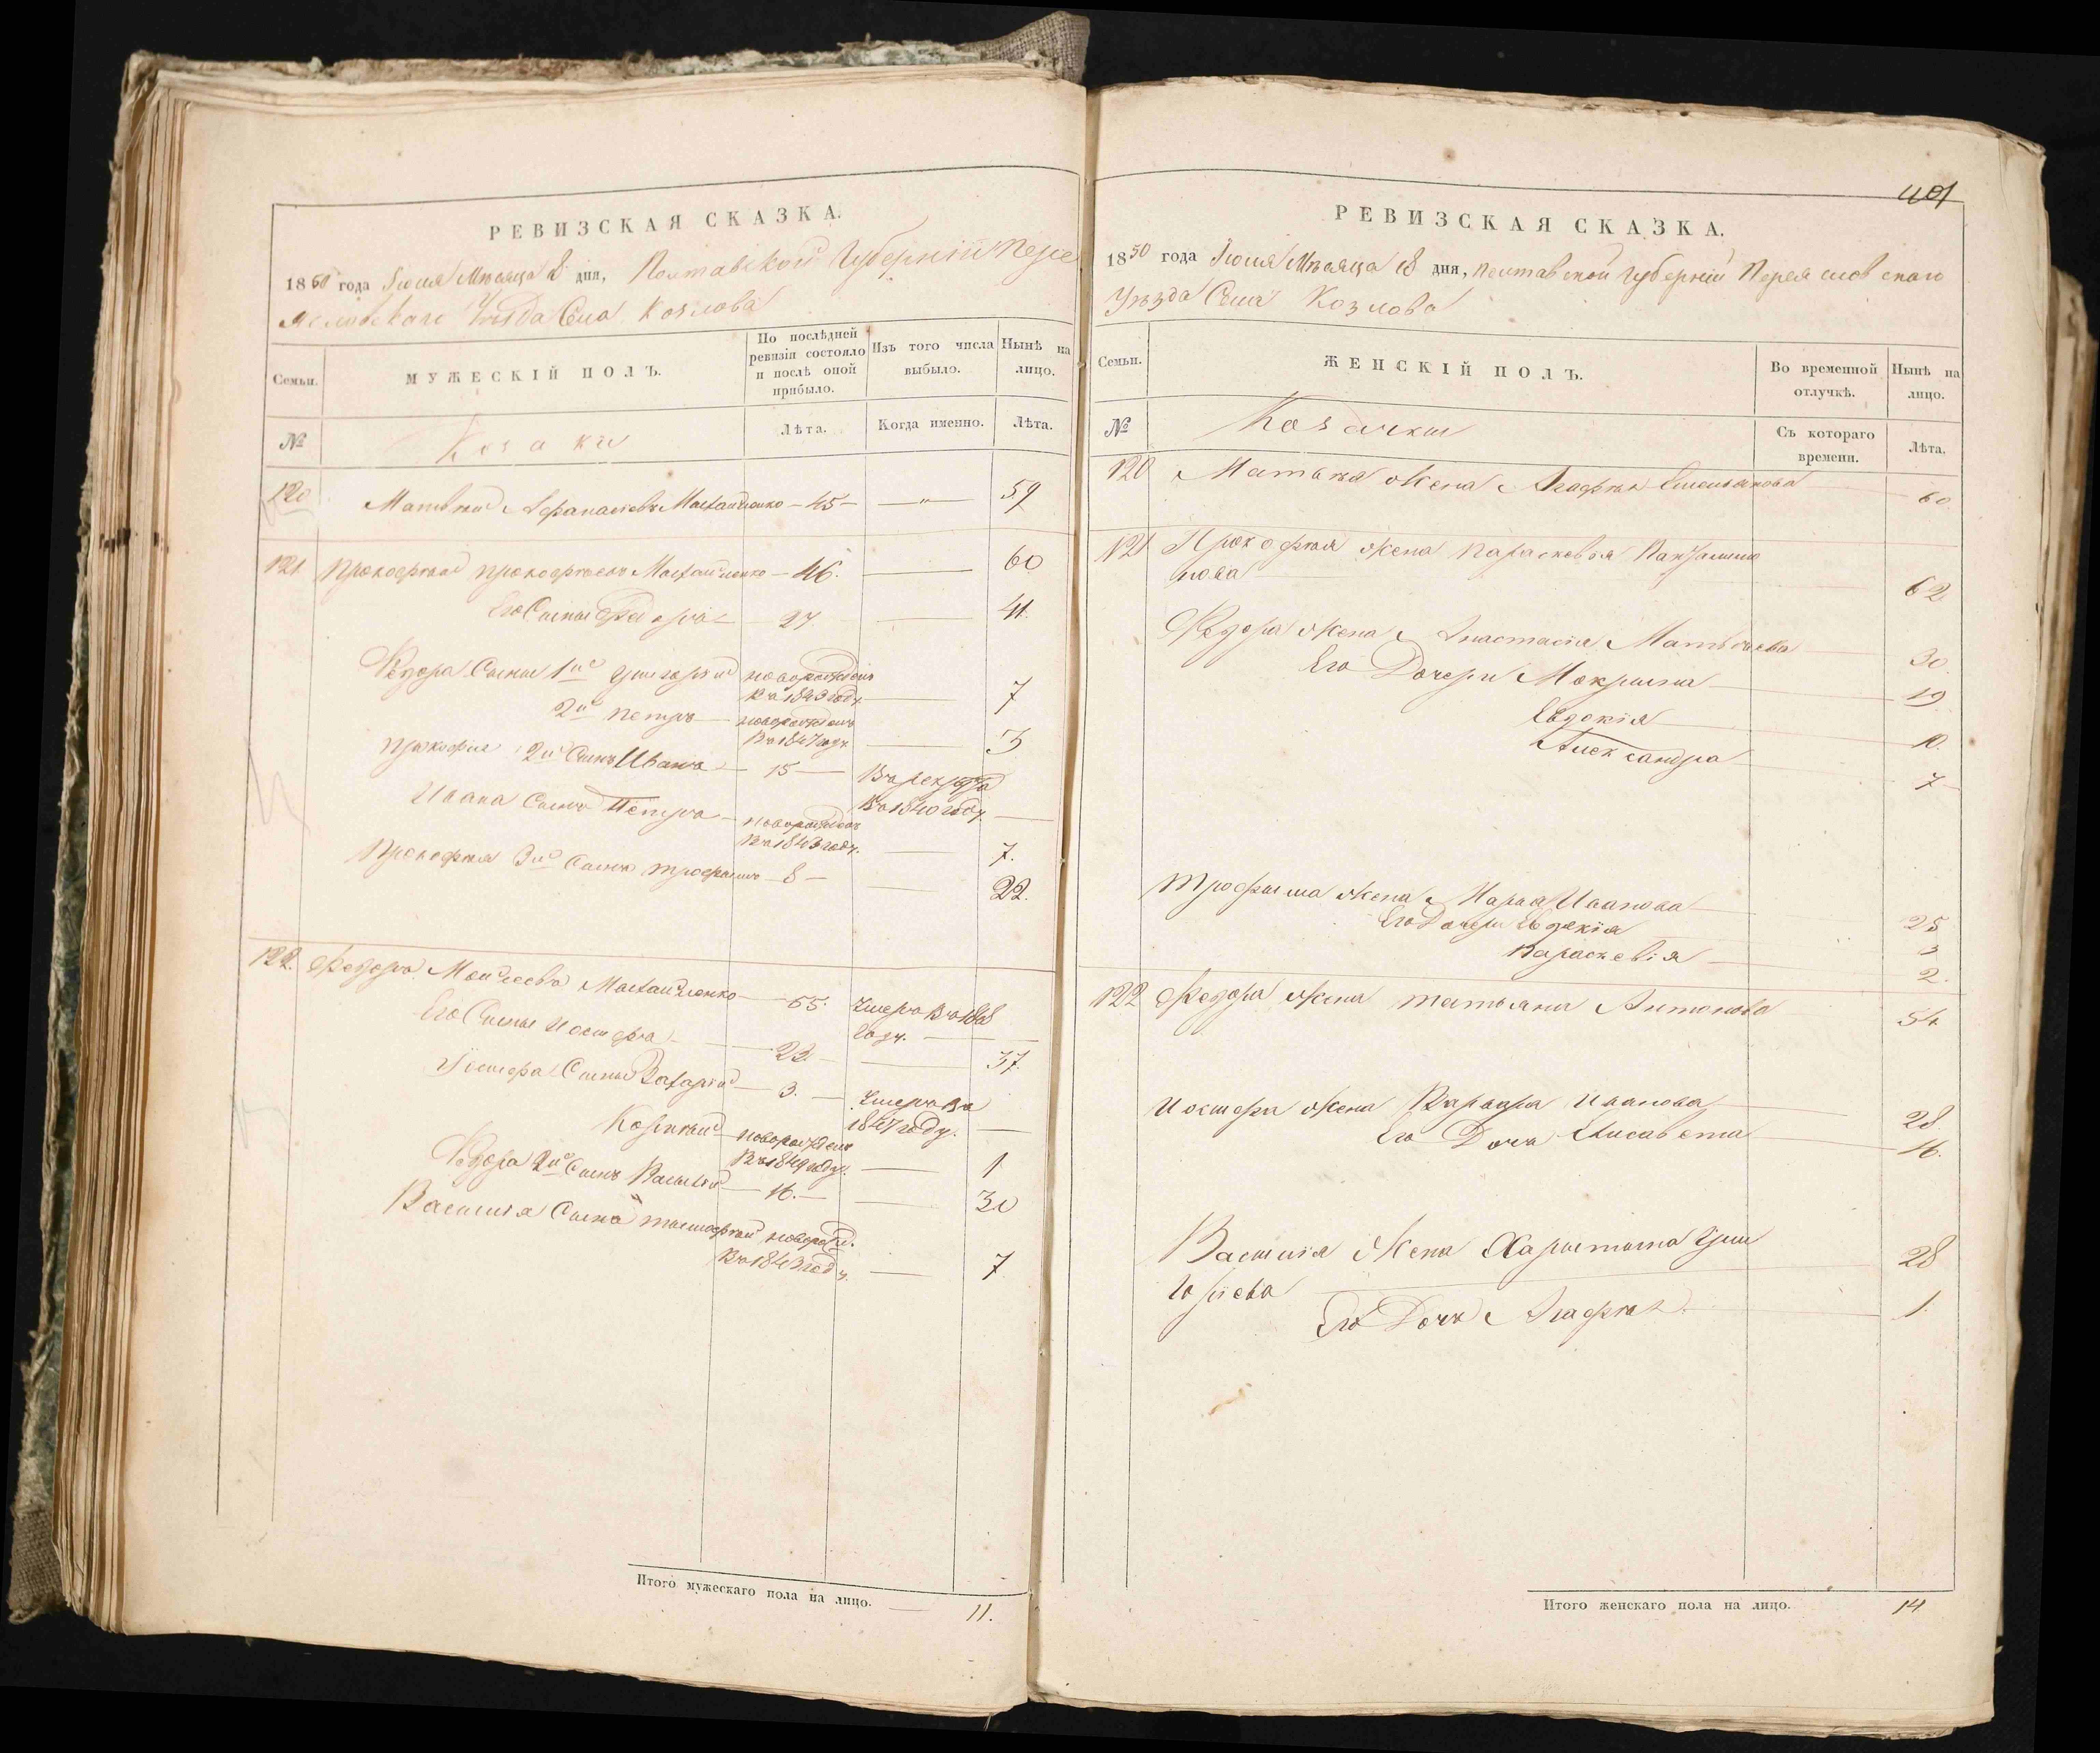 РЕВИЗСКАЯ СКАЗКА.
1850 года Іюля Мѣсяца 8 дня, Полтавской Губерніи Пере
яславскаго Уѣзда Села Козлова
Семьи.
МУЖЕСКІЙ ПОЛЪ.
По послѣдней ревизіи состояло и послѣ оной прибыло.
Изъ того числа выбыло.
Нынѣ на лицо.
№
Козаки
Лѣта.
Когда именно.
Лѣта.
120 Матвѣй Афанасіевъ — 45 — — " — 59
121 Прокофій Прокофьевъ — 46. — 60
Его Сынъ Федоръ — 27 — 41.
Федора Сыны 1й Григорій новорожденъ
въ 1843 году. — 7
2й Петръ — новорожденъ
въ 1847 году. — 3
Прокофія 2й Сынъ Иванъ — 15 — Въ рекруты
въ 1840 году. —
Ивана Сынъ Петръ — новорожденъ
въ 1843 году. — 7.
Прокофія 3й Сынъ Трофимъ — 8 — 22.
122. Федоръ Моисеевъ — 55 Умеръ въ 1848
году. —
Его Сынъ Иосифъ — 23. — 37.
Иосифа Сынъ Захарій — 3. — Умеръ въ
1847 году. —
новорожденъ
въ 1849 году. — 1
Федора 2й Сынъ Василій — 16. — 30
Василія Сынъ Тимофѣй новорожд.
въ 1843 году. — 7
Итого мужескаго пола на лицо. — 11.
401
РЕВИЗСКАЯ СКАЗКА.
1850 года Іюля Мѣсяца 8 дня, Полтавской Губерніи Переяславскаго
Уѣзда Села Козлова
Семьи.
ЖЕНСКІЙ ПОЛЪ.
Во временной отлучкѣ.
Нынѣ на лицо.
№
Козачки
Съ котораго времени.
Лѣта.
120 Матвѣя Жена Агафія Емельянова — 60
121 Прокофія Жена Параскевія
нова — 62
Федора Жена Анастасія Матвѣева — 30
Его Дочери Мокрина — 19
Евдокія — 10.
Александра — 7
Трофима Жена Марія Иванова — 25
Его Дочери Евдокія — 3
Параскевія — 2.
122 Федора Жена Татьяна Антонова — 54
Иосифа Жена Варвара Иванова — 28.
Его Дочь Елисавета — 16.
Василія Жена Харитина Гри
горіева — 28
Его Дочь Агафія — 1.
Итого женскаго пола на лицо. 14